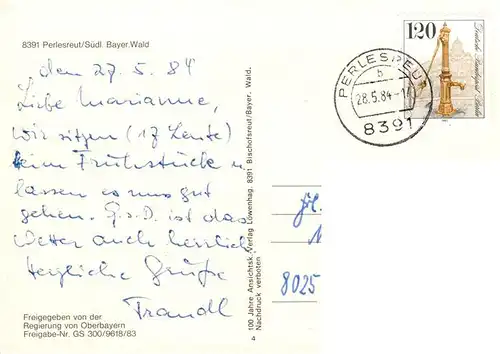 8391 Perlesreut/Südl. Bayer.Wald
den 27.5.84
Liebe Marianne,
wir sitzen (17 Leute)
beim Frühstück u.
lassen es uns gut
gehen. G.s.D. ist das
Wetter auch herrlich
Herzliche Grüße
Traudl
Freigegeben von der
Regierung von Oberbayern
Freigabe-Nr. GS 300/9618/83
100 Jahre Ansichtsk. Verlag Löwenhag, 8391 Bischofsreut/Bayer. Wald.
Nachdruck verboten
4
120
Deutsche Bundespost Berlin
PERLESREUT
b
28.5.84-17
8391
8025